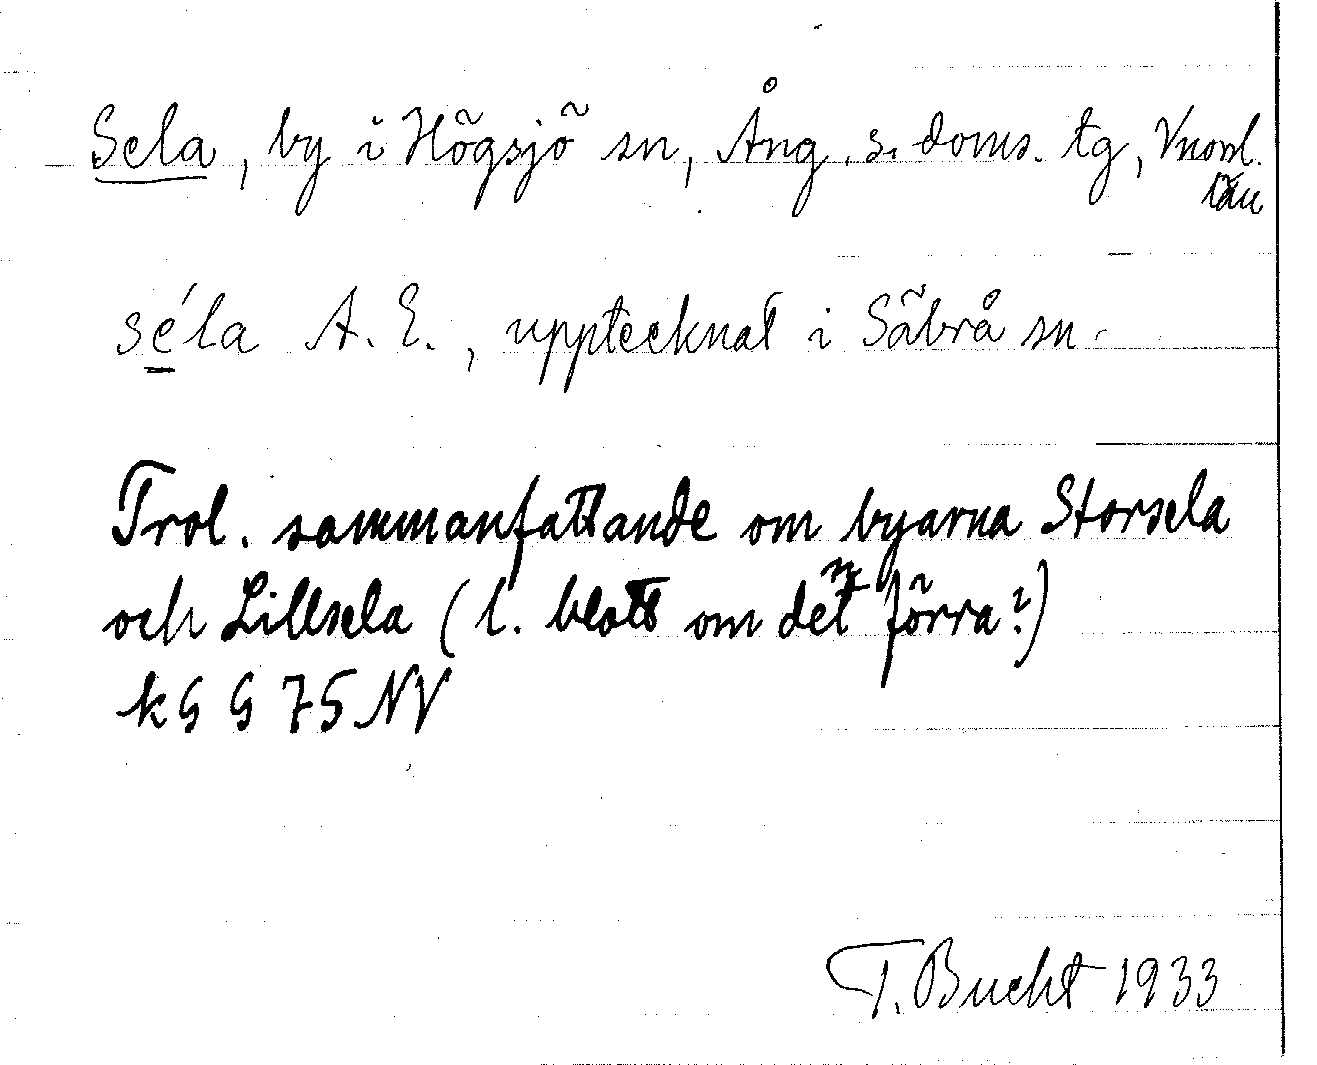 Sela, by i Högsjö sn, Ång. s. doms. tg, Vnorrl.
län
sé̱la A. E., upptecknat i Säbrå sn.
Trol. sammanfattande om byarna Storsela
och Lillsela (l. blott om det förra?)
k G G 75 NV
T. Bucht 1933